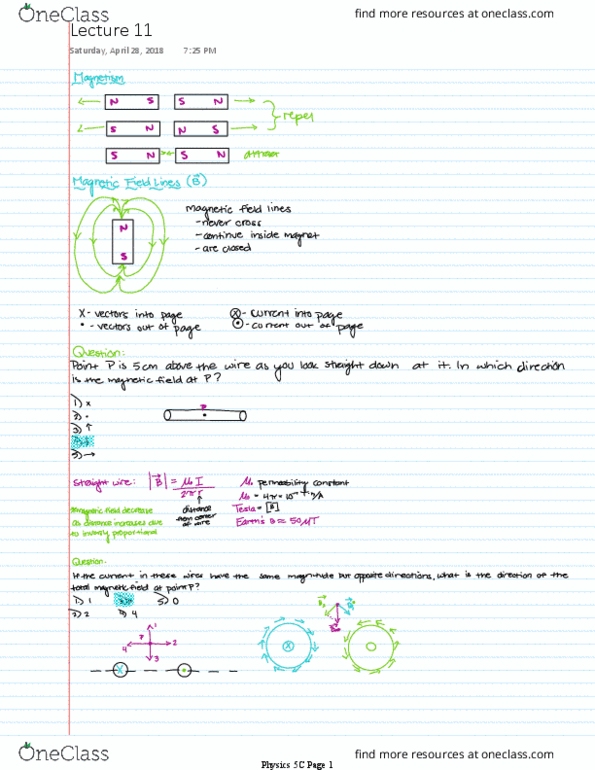 OneClass
find more resources at oneclass.com
Lecture 11
Saturday, April 28, 2018 7:25 PM
Magnetism
N S S N
S N N S
repel
S N S N
attract
Magnetic Field Lines (B)
N
S
magnetic field lines
- never cross
- continue inside magnet
- are closed
X - vectors into page
• - vectors out of page
ⓧ - current into page
⊙ - current out of page
Question:
Point P is 5cm above the wire as you look straight down at it. In which direction
is the magnetic field at P?
1) x
2) •
3) ↑
4) ↓
5) →
P
Straight wire: |B| = μ₀ I
2πr
distance
from center
of wire
Magnetic field decrease
as distance increases due
to inversly proportional
μ₀ permeability constant
μ₀ = 4π×10⁻⁷ T·m/A
Tesla = [B]
Earth's B ≈ 50μT
Question:
If the current in these wires have the same magnitude but opposite directions, what is the direction of the
total magnetic field at point P?
1) 1
2) 2
3) 3
4) 4
5) 0
1
P
4 2
3
X
OneClass
find more resources at oneclass.com
Physics 5C Page 1